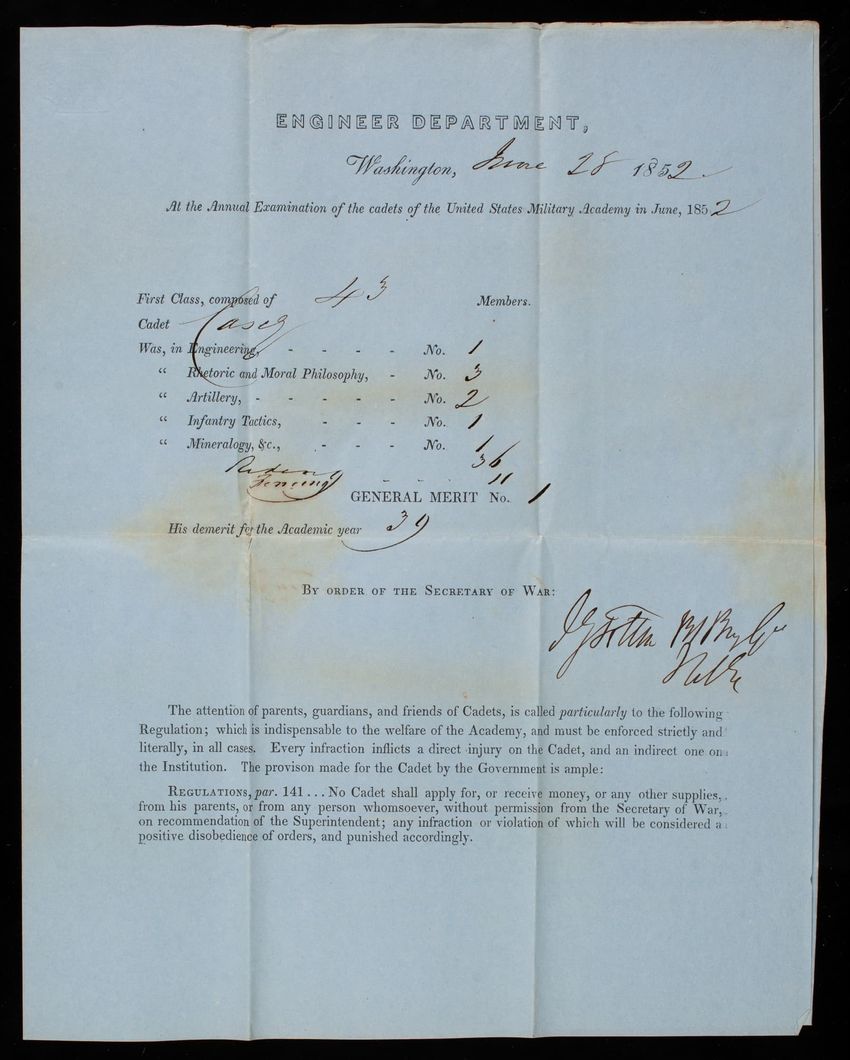 ENGINEER DEPARTMENT,
Washington, June 28 1852.
At the Annual Examination of the cadets of the United States Military Academy in June, 1852
First Class, composed of 43 Members.
Cadet Casey
Was, in Engineering, - - - - No. 1
“ Rhetoric and Moral Philosophy, - No. 3
“ Artillery, - - - - - No. 2
“ Infantry Tactics, - - - No. 1
“ Mineralogy, &c., - - - No. 1
Riding 36
Fencing - - - 11
GENERAL MERIT No. 1
His demerit for the Academic year 39
By order of the Secretary of War:
Jos G Totten Bt Brg Gn
The attention of parents, guardians, and friends of Cadets, is called particularly to the following
Regulation; which is indispensable to the welfare of the Academy, and must be enforced strictly and
literally, in all cases. Every infraction inflicts a direct injury on the Cadet, and an indirect one on
the Institution. The provison made for the Cadet by the Government is ample:
Regulations, par. 141 . . . No Cadet shall apply for, or receive money, or any other supplies,
from his parents, or from any person whomsoever, without permission from the Secretary of War,
on recommendation of the Superintendent; any infraction or violation of which will be considered a
positive disobedience of orders, and punished accordingly.